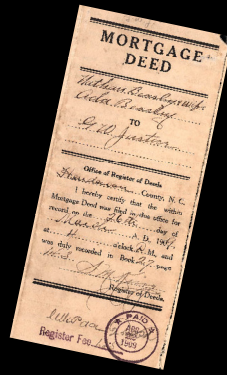 MORTGAGE
DEED
Nathan Beasley & wife
Ada Beasley
TO
G. W. Justice
Office of Register of Deeds
Henderson County, N. C.
I hereby certify that the within
Mortgage Deed was filed in this office for
record on the 26th day of
March A. D. 1909,
at o'clock M., and
was duly recorded in Book 27, page
Register of Deeds.
Register Fee
PAID
1909